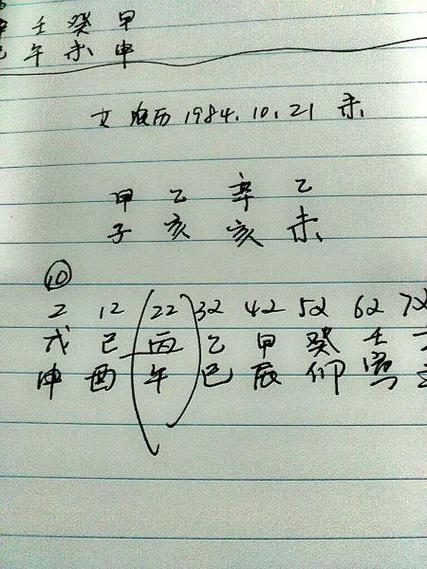 壬 癸 甲
午 未 申
女 农历 1984.10.21 未
甲 乙 辛 乙
子 亥 亥 未
⑩
2 12 (22) 32 42 52 62 72
戊 己 丙 乙 甲 癸 壬
申 酉 午 巳 辰 卯 寅